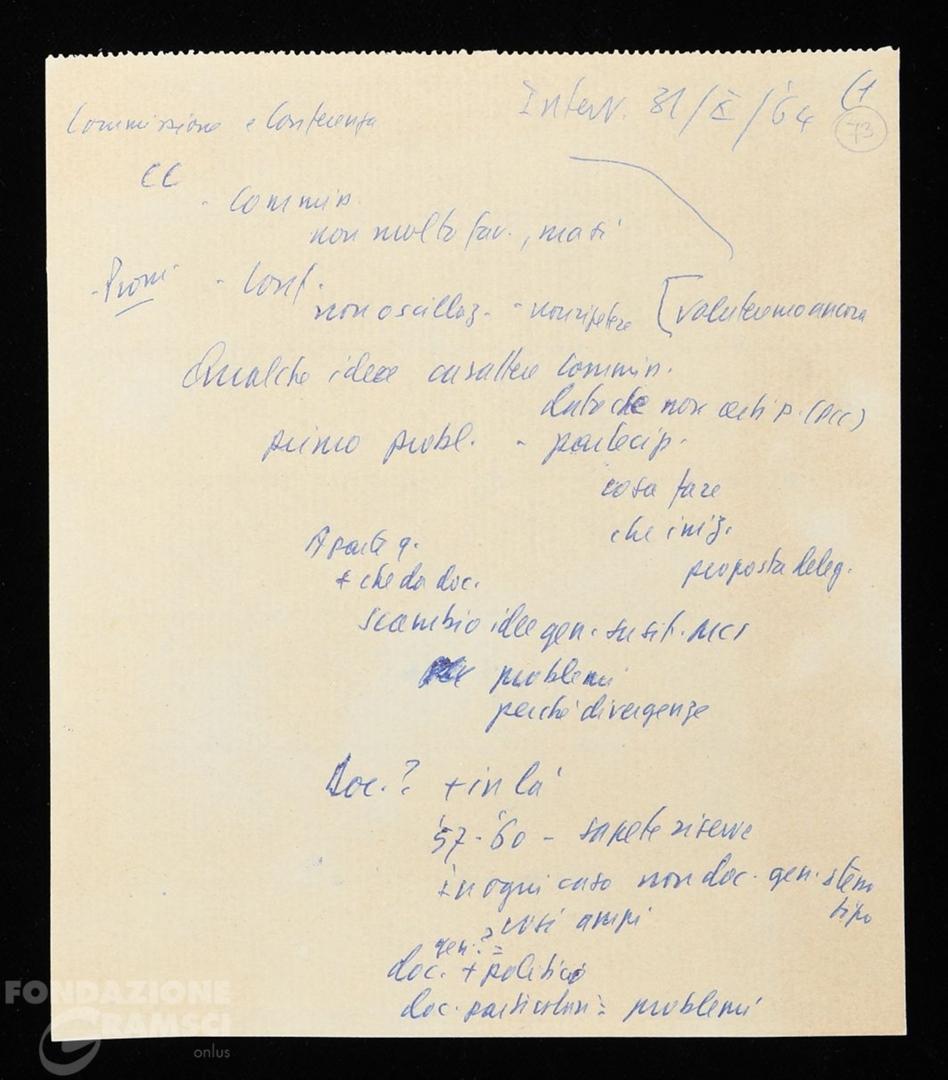 Commissione e Conferenza
Interv. 31/X/64 (1
73
CC
- Commis.
non molto fav., ma sì
- Conf.
non oscillaz. - non ripetere [valuteremo ancora
Qualche idea carattere commis.
dato che non certi p. (PCC)
primo probl. - partecip.
cosa fare
che iniz.
A parte q.
proposta deleg.
+ che da doc.
scambio idee gen. su sit. MCI
problemi
perché divergenze
Doc.? + in là
'57-'60 - sapete riserve
In ogni caso non doc. gen. stesso
tipo
così ampi
gen.? =
doc. + politici
doc. particolari = problemi
FONDAZIONE
GRAMSCI
onlus